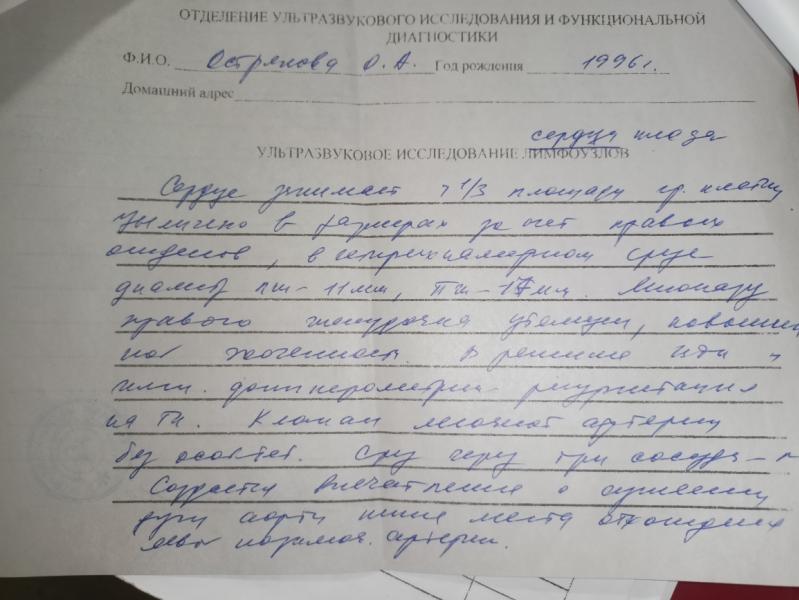 ОТДЕЛЕНИЕ УЛЬТРАЗВУКОВОГО ИССЛЕДОВАНИЯ И ФУНКЦИОНАЛЬНОЙ
ДИАГНОСТИКИ
Ф.И.О. Острякова О. А. Год рождения 1996г.
Домашний адрес
сердца плода
УЛЬТРАЗВУКОВОЕ ИССЛЕДОВАНИЕ ЛИМФОУЗЛОВ
Сердце занимает > 1/3 площади гр. клетки
увеличено в размерах за счет правых
отделов, в четырехкамерном срезе
диаметр лж - 11мм, Пж - 17мм. Миокард
правого желудочка утолщен, повышен
ной эхогенности. В режиме ЦДК и
имп. допплерометрии регургитация
на ТК. Клапан легочной артерии
без особ. Срез через три сосуда - N
Создается впечатление о сужении
дуги аорты ниже места отхождения
левой артерии.